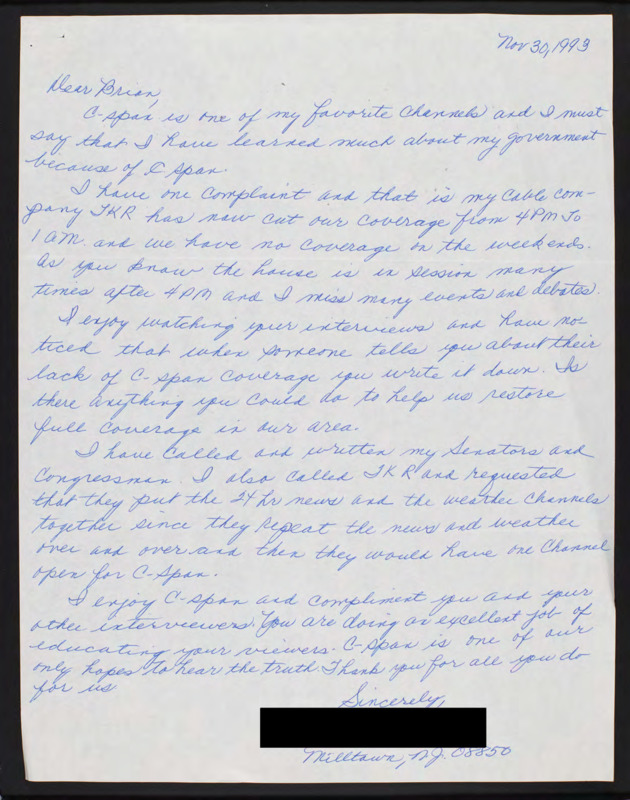 Nov 30, 1993
Dear Brian,
C-span is one of my favorite channels and I must
say that I have learned much about my government
because of C span.
I have one complaint and that is my cable com-
pany TKR has now cut our coverage from 4 PM to
1 AM. and we have no coverage on the weekends.
As you know the house is in session many
times after 4 PM and I miss many events and debates.
I enjoy watching your interviews and have no-
ticed that when someone tells you about their
lack of C-span coverage you write it down. Is
there anything you could do to help us restore
full coverage in our area.
I have called and written my Senators and
Congressman. I also called TKR and requested
that they put the 24 hr news and the weather channels
together since they repeat the news and weather
over and over and then they would have one channel
open for C-Span.
I enjoy C-span and compliment you and your
other interviewers. You are doing an excellent job of
educating your viewers. C-span is one of our
only hopes to hear the truth. Thank you for all you do
for us
Sincerely,
Milltown, N.J. 08850